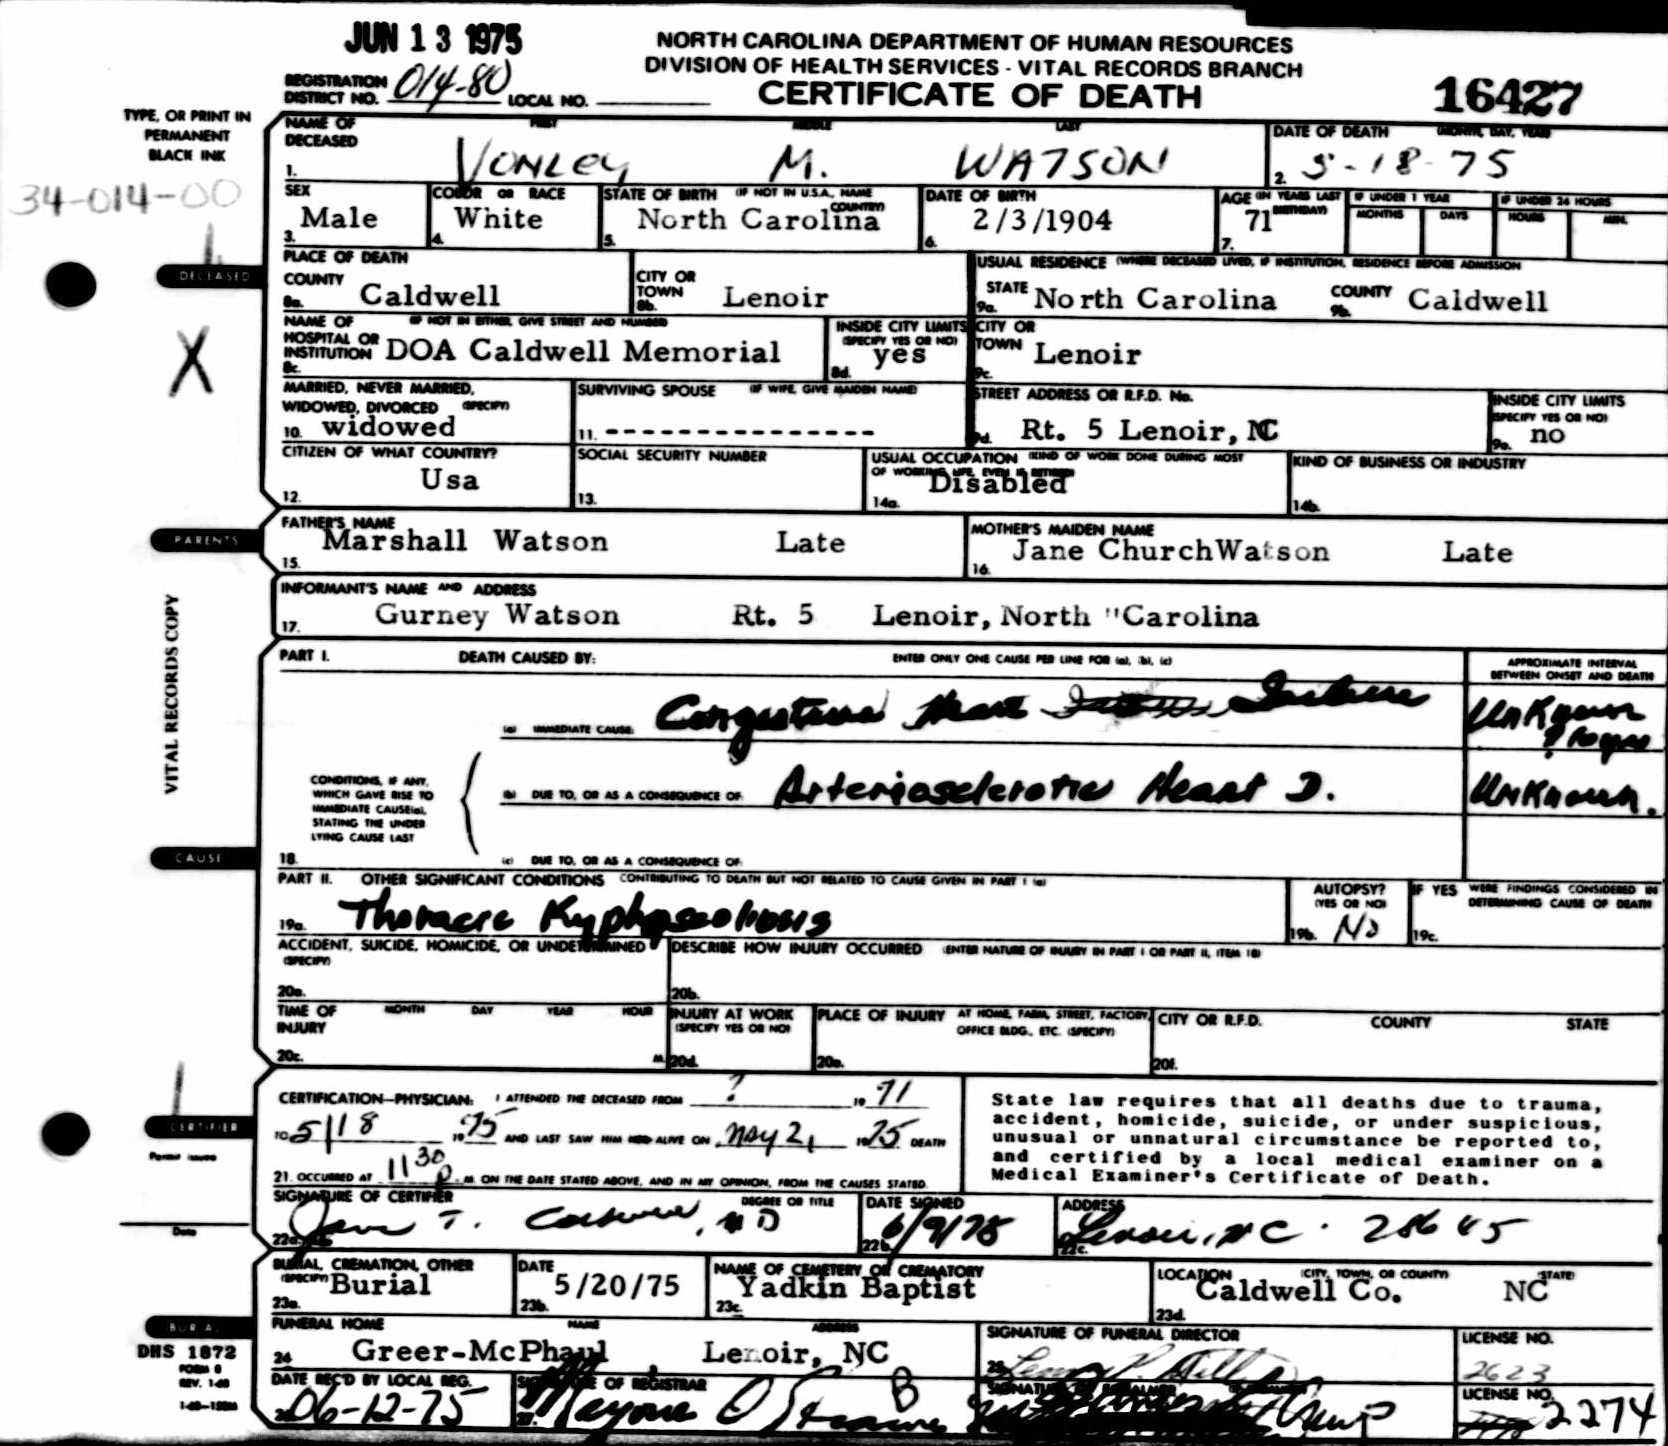 JUN 13 1975
NORTH CAROLINA DEPARTMENT OF HUMAN RESOURCES
DIVISION OF HEALTH SERVICES - VITAL RECORDS BRANCH
CERTIFICATE OF DEATH
16427
REGISTRATION DISTRICT NO. 014-80 LOCAL NO.
TYPE, OR PRINT IN
PERMANENT
BLACK INK
34-014-00
NAME OF DECEASED FIRST MIDDLE LAST
1. VONLEY M. WATSON
DATE OF DEATH (MONTH, DAY, YEAR)
2. 5-18-75
SEX
3. Male
COLOR OR RACE
4. White
STATE OF BIRTH (IF NOT IN U.S.A., NAME COUNTRY)
5. North Carolina
DATE OF BIRTH
6. 2/3/1904
AGE (IN YEARS LAST BIRTHDAY)
7. 71
IF UNDER 1 YEAR
MONTHS DAYS
IF UNDER 24 HOURS
HOURS MIN.
DECEASED
PLACE OF DEATH
COUNTY
8a. Caldwell
CITY OR TOWN
8b. Lenoir
USUAL RESIDENCE (WHERE DECEASED LIVED, IF INSTITUTION, RESIDENCE BEFORE ADMISSION
STATE
9a. North Carolina
COUNTY
9b. Caldwell
X
NAME OF HOSPITAL OR INSTITUTION (IF NOT IN EITHER, GIVE STREET AND NUMBER)
8c. DOA Caldwell Memorial
INSIDE CITY LIMITS (SPECIFY YES OR NO)
8d. yes
CITY OR TOWN
9c. Lenoir
MARRIED, NEVER MARRIED, WIDOWED, DIVORCED (SPECIFY)
10. widowed
SURVIVING SPOUSE (IF WIFE, GIVE MAIDEN NAME)
11. ----------------
STREET ADDRESS OR R.F.D. No.
9d. Rt. 5 Lenoir, NC
INSIDE CITY LIMITS (SPECIFY YES OR NO)
9e. no
CITIZEN OF WHAT COUNTRY?
12. Usa
SOCIAL SECURITY NUMBER
13.
USUAL OCCUPATION (KIND OF WORK DONE DURING MOST OF WORKING LIFE, EVEN IF RETIRED)
14a. Disabled
KIND OF BUSINESS OR INDUSTRY
14b.
PARENTS
FATHER'S NAME
15. Marshall Watson Late
MOTHER'S MAIDEN NAME
16. Jane ChurchWatson Late
INFORMANT'S NAME AND ADDRESS
17. Gurney Watson Rt. 5 Lenoir, North "Carolina
VITAL RECORDS COPY
PART I. DEATH CAUSED BY: ENTER ONLY ONE CAUSE PER LINE FOR (a), (b), (c)
APPROXIMATE INTERVAL BETWEEN ONSET AND DEATH
(a) IMMEDIATE CAUSE: Congestive Heart Failure
Unknown
CONDITIONS, IF ANY,
WHICH GAVE RISE TO
IMMEDIATE CAUSE(a),
STATING THE UNDER
LYING CAUSE LAST
(b) DUE TO, OR AS A CONSEQUENCE OF: Arteriosclerotic Heart D.
Unknown.
CAUSE
18. (c) DUE TO, OR AS A CONSEQUENCE OF:
PART II. OTHER SIGNIFICANT CONDITIONS CONTRIBUTING TO DEATH BUT NOT RELATED TO CAUSE GIVEN IN PART I (a)
19a. Thoracic Kyphoscoliosis
AUTOPSY? (YES OR NO)
19b. NO
IF YES WERE FINDINGS CONSIDERED IN DETERMINING CAUSE OF DEATH
19c.
ACCIDENT, SUICIDE, HOMICIDE, OR UNDETERMINED (SPECIFY)
20a.
DESCRIBE HOW INJURY OCCURRED (ENTER NATURE OF INJURY IN PART I OR PART II, ITEM 18)
20b.
TIME OF INJURY MONTH DAY YEAR HOUR
20c. M.
INJURY AT WORK (SPECIFY YES OR NO)
20d.
PLACE OF INJURY AT HOME, FARM, STREET, FACTORY, OFFICE BLDG., ETC. (SPECIFY)
20e.
CITY OR R.F.D. COUNTY STATE
20f.
CERTIFIER
Permit Issued
Date
CERTIFICATION—PHYSICIAN: I ATTENDED THE DECEASED FROM ? 19 71
TO 5/18 1975 AND LAST SAW HIM HER ALIVE ON May 2, 1975 DEATH
21. OCCURRED AT 1130 P. M. ON THE DATE STATED ABOVE, AND IN MY OPINION, FROM THE CAUSES STATED.
State law requires that all deaths due to trauma,
accident, homicide, suicide, or under suspicious,
unusual or unnatural circumstance be reported to,
and certified by a local medical examiner on a
Medical Examiner's Certificate of Death.
SIGNATURE OF CERTIFIER DEGREE OR TITLE
22a. T. MD
DATE SIGNED
22b. 6/9/75
ADDRESS
22c. Lenoir, NC. 28645
BURIAL, CREMATION, OTHER (SPECIFY)
23a. Burial
DATE
23b. 5/20/75
NAME OF CEMETERY OR CREMATORY
23c. Yadkin Baptist
LOCATION (CITY, TOWN, OR COUNTY) (STATE)
23d. Caldwell Co. NC
BURIAL
DHS 1872
FORM 8
REV. 1-68
FUNERAL HOME NAME ADDRESS
24 Greer-McPhaul, Lenoir, NC
SIGNATURE OF FUNERAL DIRECTOR
25.
LICENSE NO.
2623
DATE REC'D BY LOCAL REG.
26. 06-12-75
SIGNATURE OF REGISTRAR
27.
SIGNATURE OF EMBALMER
LICENSE NO.
2274